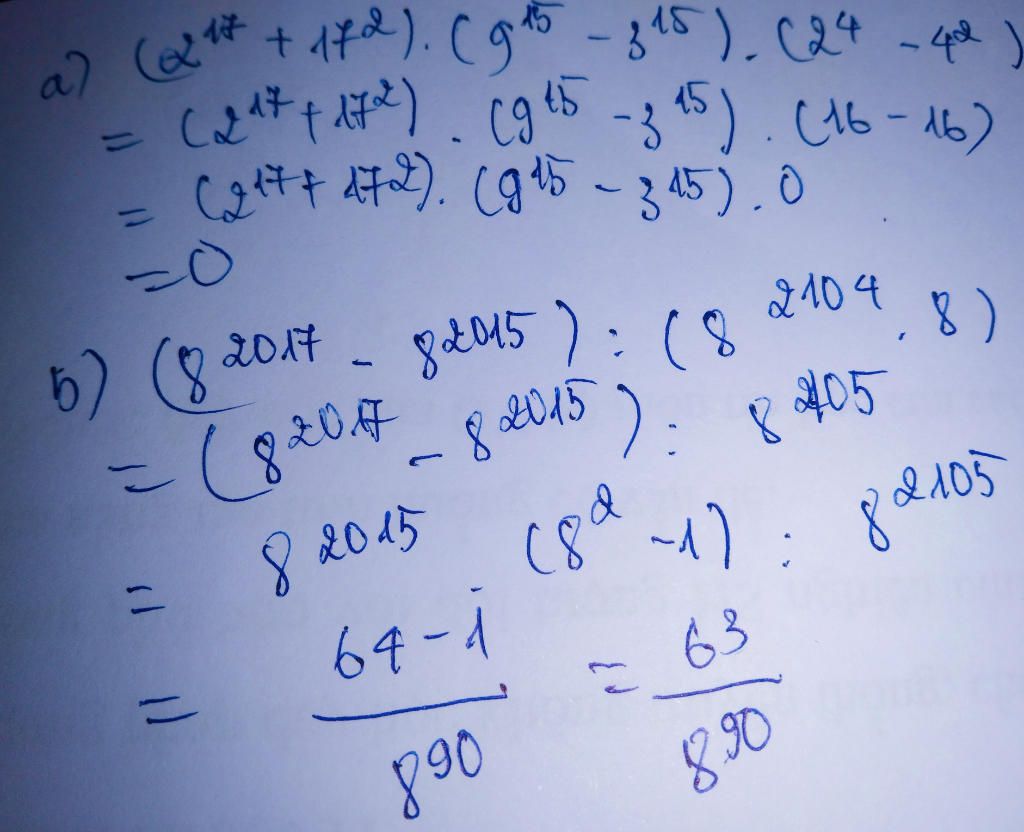 a) (2¹⁷ + 17²). (9¹⁵ - 3¹⁵). (2⁴ - 4²)
= (2¹⁷ + 17²). (9¹⁵ - 3¹⁵). (16 - 16)
= (2¹⁷ + 17²). (9¹⁵ - 3¹⁵). 0
= 0
b) (8²⁰¹⁷ - 8²⁰¹⁵) : (8²¹⁰⁴. 8)
= (8²⁰¹⁷ - 8²⁰¹⁵) : 8²¹⁰⁵
= 8²⁰¹⁵. (8² - 1) : 8²¹⁰⁵
= (64 - 1)/8⁹⁰ = 63/8⁹⁰